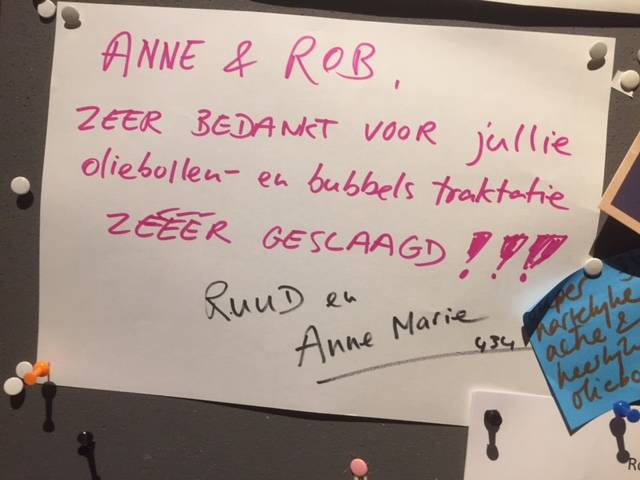 ANNE & ROB,
ZEER BEDANKT VOOR jullie
oliebollen- en bubbels traktatie
ZEEER GESLAAGD !!!
RUUD en
Anne Marie
434
hartelijke
actie &
heerlijke